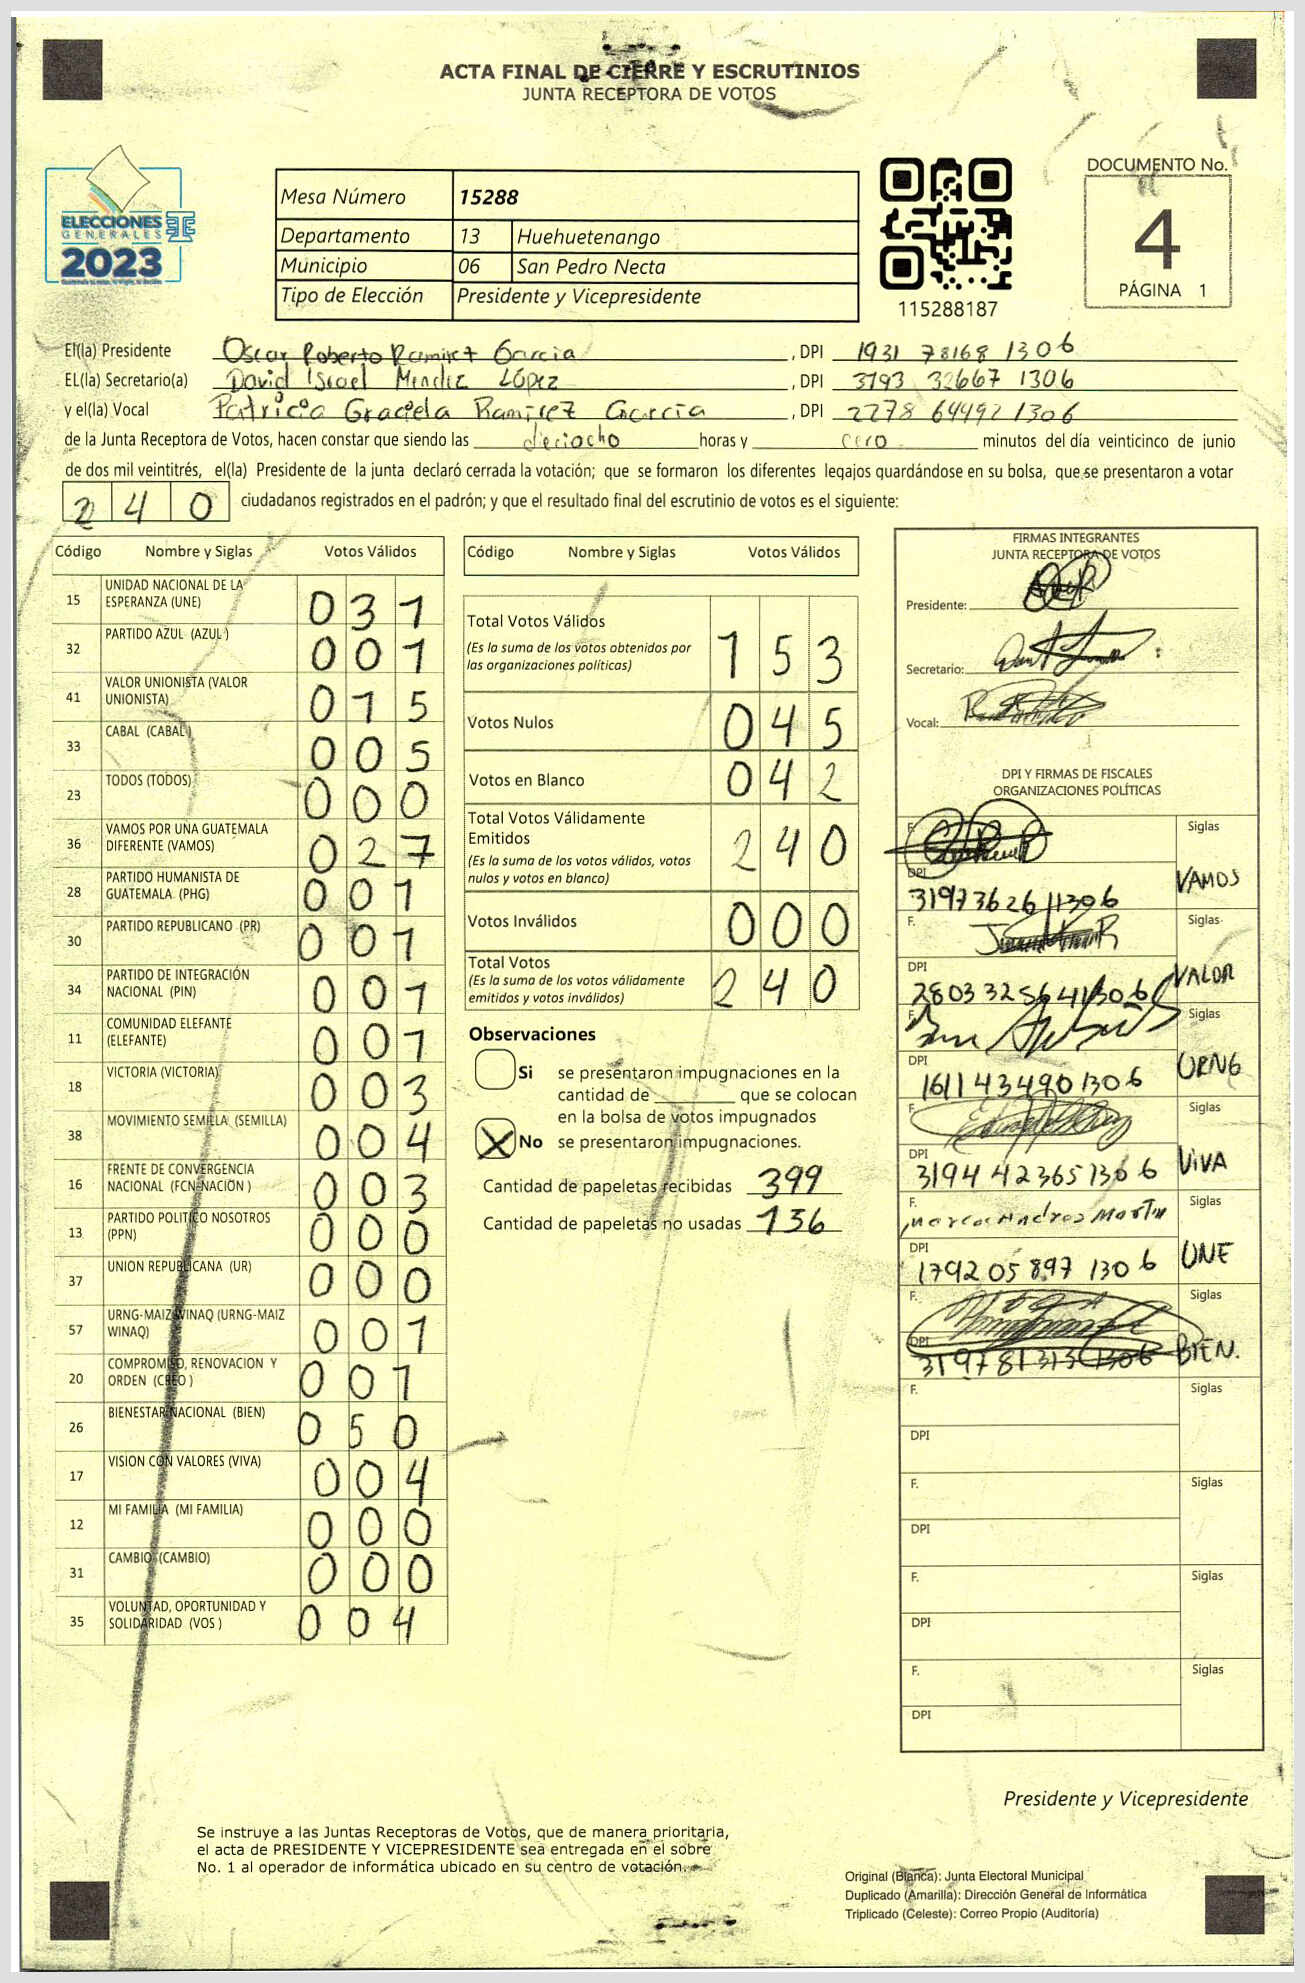 ACTA FINAL DE CIERRE Y ESCRUTINIOS
JUNTA RECEPTORA DE VOTOS
ELECCIONES
GENERALES
2023
Mesa Número 15288
Departamento 13 Huehuetenango
Municipio 06 San Pedro Necta
Tipo de Elección Presidente y Vicepresidente
115288187
DOCUMENTO No.
4
PÁGINA 1
El(la) Presidente Oscar Roberto Ramirez Garcia , DPI 1931 78168 1306
EL(la) Secretario(a) David Israel Mendez López , DPI 3193 32667 1306
y el(la) Vocal Patricia Graciela Ramirez Garcia , DPI 2278 64492 1306
de la Junta Receptora de Votos, hacen constar que siendo las dieciocho horas y cero minutos del día veinticinco de junio
de dos mil veintitrés, el(la) Presidente de la junta declaró cerrada la votación; que se formaron los diferentes legajos guardándose en su bolsa, que se presentaron a votar
240 ciudadanos registrados en el padrón; y que el resultado final del escrutinio de votos es el siguiente:
Código Nombre y Siglas Votos Válidos
15 UNIDAD NACIONAL DE LA ESPERANZA (UNE) 031
32 PARTIDO AZUL (AZUL) 001
41 VALOR UNIONISTA (VALOR UNIONISTA) 015
33 CABAL (CABAL) 005
23 TODOS (TODOS) 000
36 VAMOS POR UNA GUATEMALA DIFERENTE (VAMOS) 027
28 PARTIDO HUMANISTA DE GUATEMALA (PHG) 001
30 PARTIDO REPUBLICANO (PR) 001
34 PARTIDO DE INTEGRACIÓN NACIONAL (PIN) 001
11 COMUNIDAD ELEFANTE (ELEFANTE) 001
18 VICTORIA (VICTORIA) 003
38 MOVIMIENTO SEMILLA (SEMILLA) 004
16 FRENTE DE CONVERGENCIA NACIONAL (FCN-NACION ) 003
13 PARTIDO POLITICO NOSOTROS (PPN) 000
37 UNION REPUBLICANA (UR) 000
57 URNG-MAIZ WINAQ (URNG-MAIZ WINAQ) 001
20 COMPROMISO, RENOVACION Y ORDEN (CREO ) 001
26 BIENESTAR NACIONAL (BIEN) 050
17 VISION CON VALORES (VIVA) 004
12 MI FAMILIA (MI FAMILIA) 000
31 CAMBIO (CAMBIO) 000
35 VOLUNTAD, OPORTUNIDAD Y SOLIDARIDAD (VOS ) 004
Código Nombre y Siglas Votos Válidos
Total Votos Válidos 153
(Es la suma de los votos obtenidos por
las organizaciones políticas)
Votos Nulos 045
Votos en Blanco 042
Total Votos Válidamente
Emitidos 240
(Es la suma de los votos válidos, votos
nulos y votos en blanco)
Votos Inválidos 000
Total Votos 240
(Es la suma de los votos válidamente
emitidos y votos inválidos)
Observaciones
Si se presentaron impugnaciones en la
cantidad de que se colocan
en la bolsa de votos impugnados
X No se presentaron impugnaciones.
Cantidad de papeletas recibidas 399
Cantidad de papeletas no usadas 136
FIRMAS INTEGRANTES
JUNTA RECEPTORA DE VOTOS
Presidente:
Secretario:
Vocal:
DPI Y FIRMAS DE FISCALES
ORGANIZACIONES POLÍTICAS
F. Siglas
DPI 3197362611306 VAMOS
F. Siglas
DPI 2803325641306 VALOR
F. Siglas
DPI 1611434901306 URNG
F. Siglas
DPI 3194423651306 VIVA
F. Marcos Andres Martin Siglas
DPI 1792 05 897 1306 UNE
F. Siglas
DPI 3197813131306 BIEN.
F. Siglas
DPI
F. Siglas
DPI
F. Siglas
DPI
F. Siglas
DPI
Presidente y Vicepresidente
Se instruye a las Juntas Receptoras de Votos, que de manera prioritaria,
el acta de PRESIDENTE Y VICEPRESIDENTE sea entregada en el sobre
No. 1 al operador de informática ubicado en su centro de votación.
Original (Blanca): Junta Electoral Municipal
Duplicado (Amarilla): Dirección General de Informática
Triplicado (Celeste): Correo Propio (Auditoría)